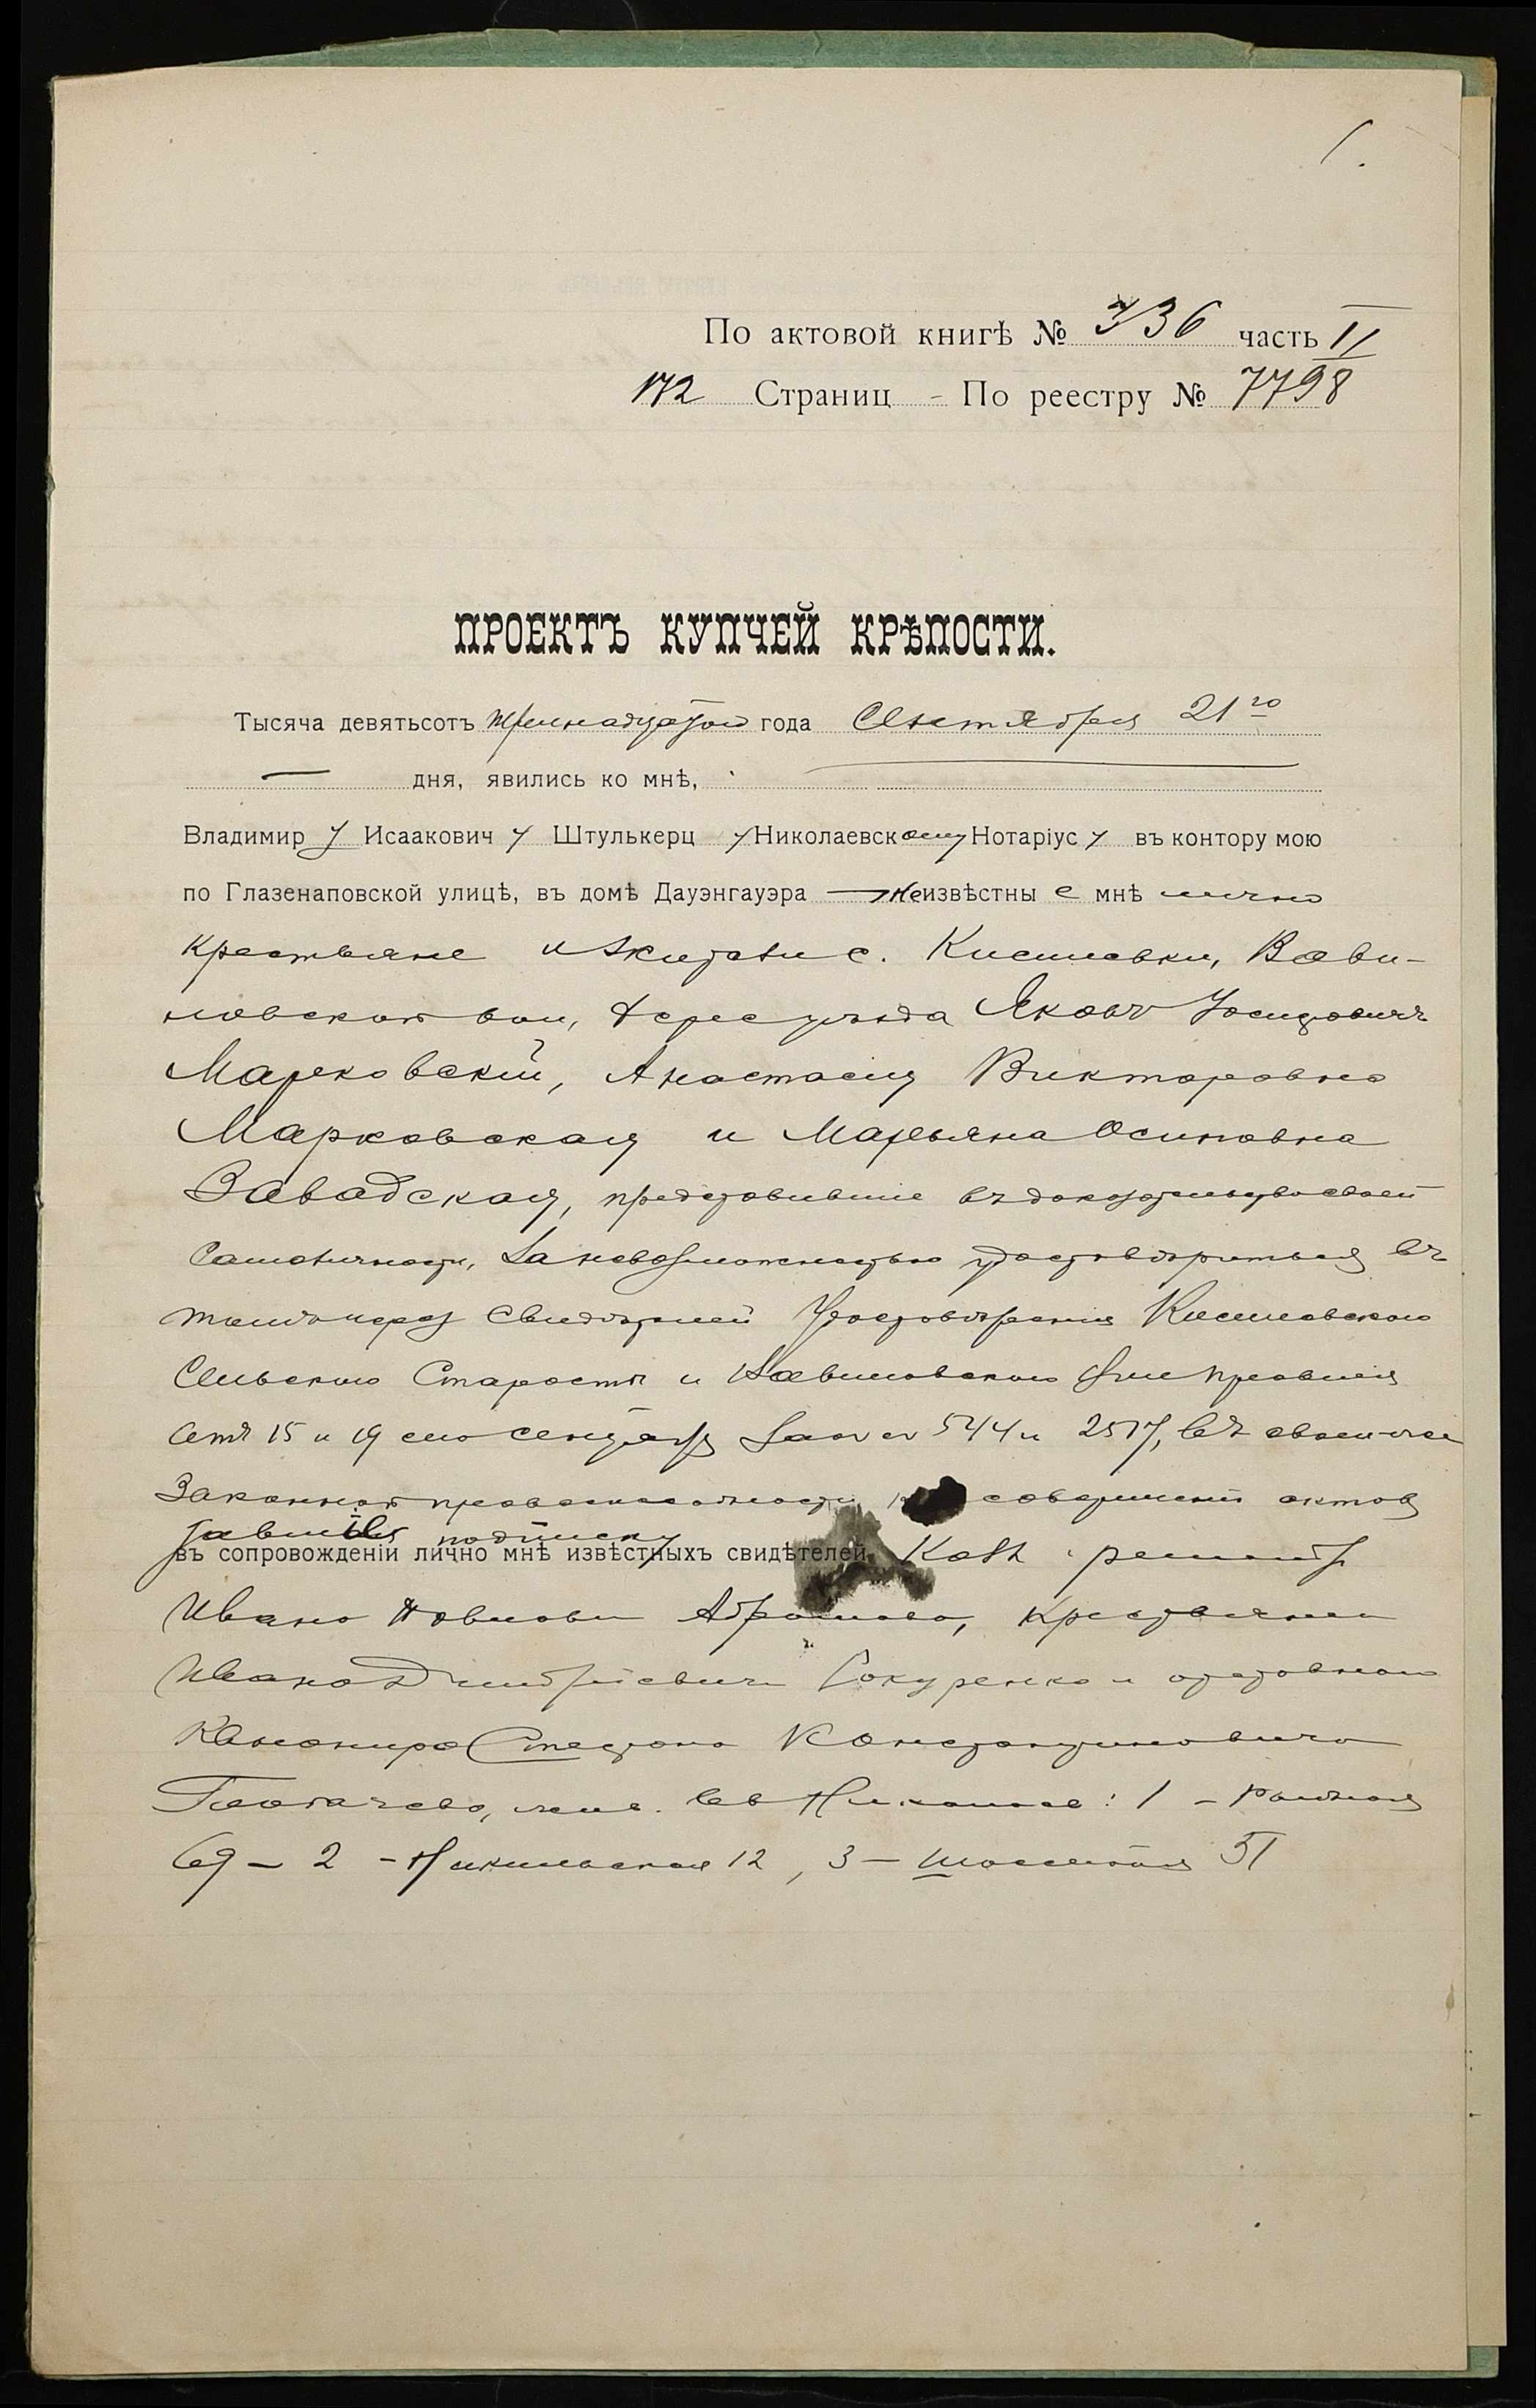 1.
По актовой книгѣ № 336 часть II
172 Страниц - По реестру № 7798
ПРОЕКТЪ КУПЧЕЙ КРѢПОСТИ.
Тысяча девятьсотъ тринадцатого года Сентября 21го
дня, явились ко мнѣ,
Владимиру Исааковичу Штулькерцу Николаевскому Нотаріусу въ контору мою
по Глазенаповской улицѣ, въ домѣ Дауэнгауэра неизвѣстные мнѣ лично
крестьяне и жители с. Киселевки, Вави-
ловской вол, Херс уѣзда Яковъ Іосифовичъ
Марковскій, Анастасия Викторовна
Марковская и Марьяна Осиповна
Завадская, представившие въ доказательство своей
самоличности, за невозможностью удостовѣриться въ
томъ через свидѣтелей Удостовѣрения Киселевского
Сельского Старосты и Вавиловского правления
отъ 15 и 19 сего сентября за 544 и 2517, въ своей
Законной правоспособности совершению актов
подписку
въ сопровожденіи лично мнѣ извѣстныхъ свидѣтелей
Ивана Павлови Абрамова, крестьянин
Ивана Дмитріевич Сокуренко и отставного
Канонира Степана Константиновича
жив. въ Николаеве: 1 -
69 - 2 - Никольская 12, 3 - 51